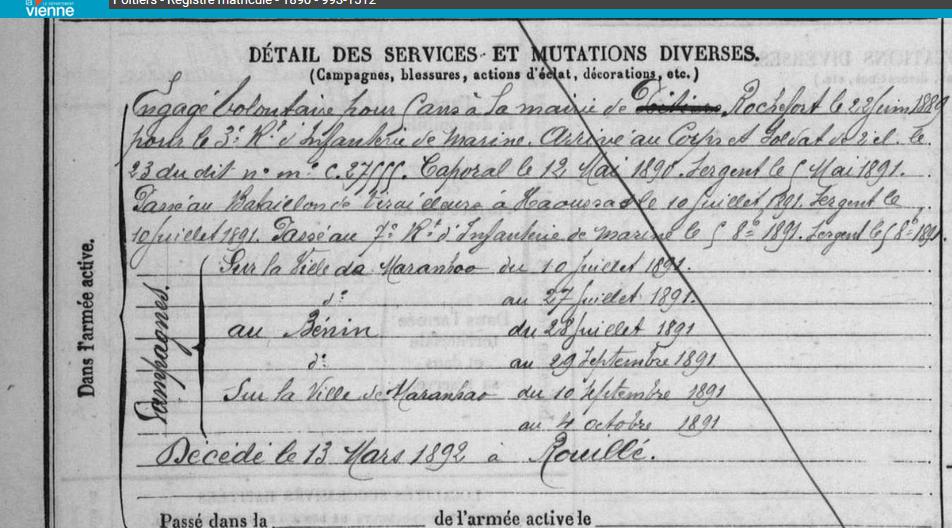 LE DÉPARTEMENT
vienne
Poitiers - Registre matricule - 1890 - 993-1512
DÉTAIL DES SERVICES ET MUTATIONS DIVERSES.
(Campagnes, blessures, actions d'éclat, décorations, etc.)
Engagé volontaire pour 5 ans à la mairie de Rochefort le 22 Juin 1889
pour le 3e Rt d'Infanterie de marine. Arrivé au Corps et Soldat de 2e cl. le
23 du dit n° mle C. 27555. Caporal le 12 Mai 1890. Sergent le 5 Mai 1891.
Passé au Bataillon de Tirailleurs le 10 juillet 1891. Sergent le
10 juillet 1891. Passé au 7e Rt d'Infanterie de marine le 5 8bre 1891. Sergent le 5 8bre 1891.
Dans l'armée active.
Campagnes.
Sur la Ville de Maranhao du 10 Juillet 1891.
d° au 27 Juillet 1891.
au Bénin du 28 Juillet 1891
d° au 29 Septembre 1891
Sur la Ville de Maranhao du 10 Septembre 1891
au 4 octobre 1891
Décédé le 13 Mars 1892 à Rouillé.
Passé dans la de l'armée active le